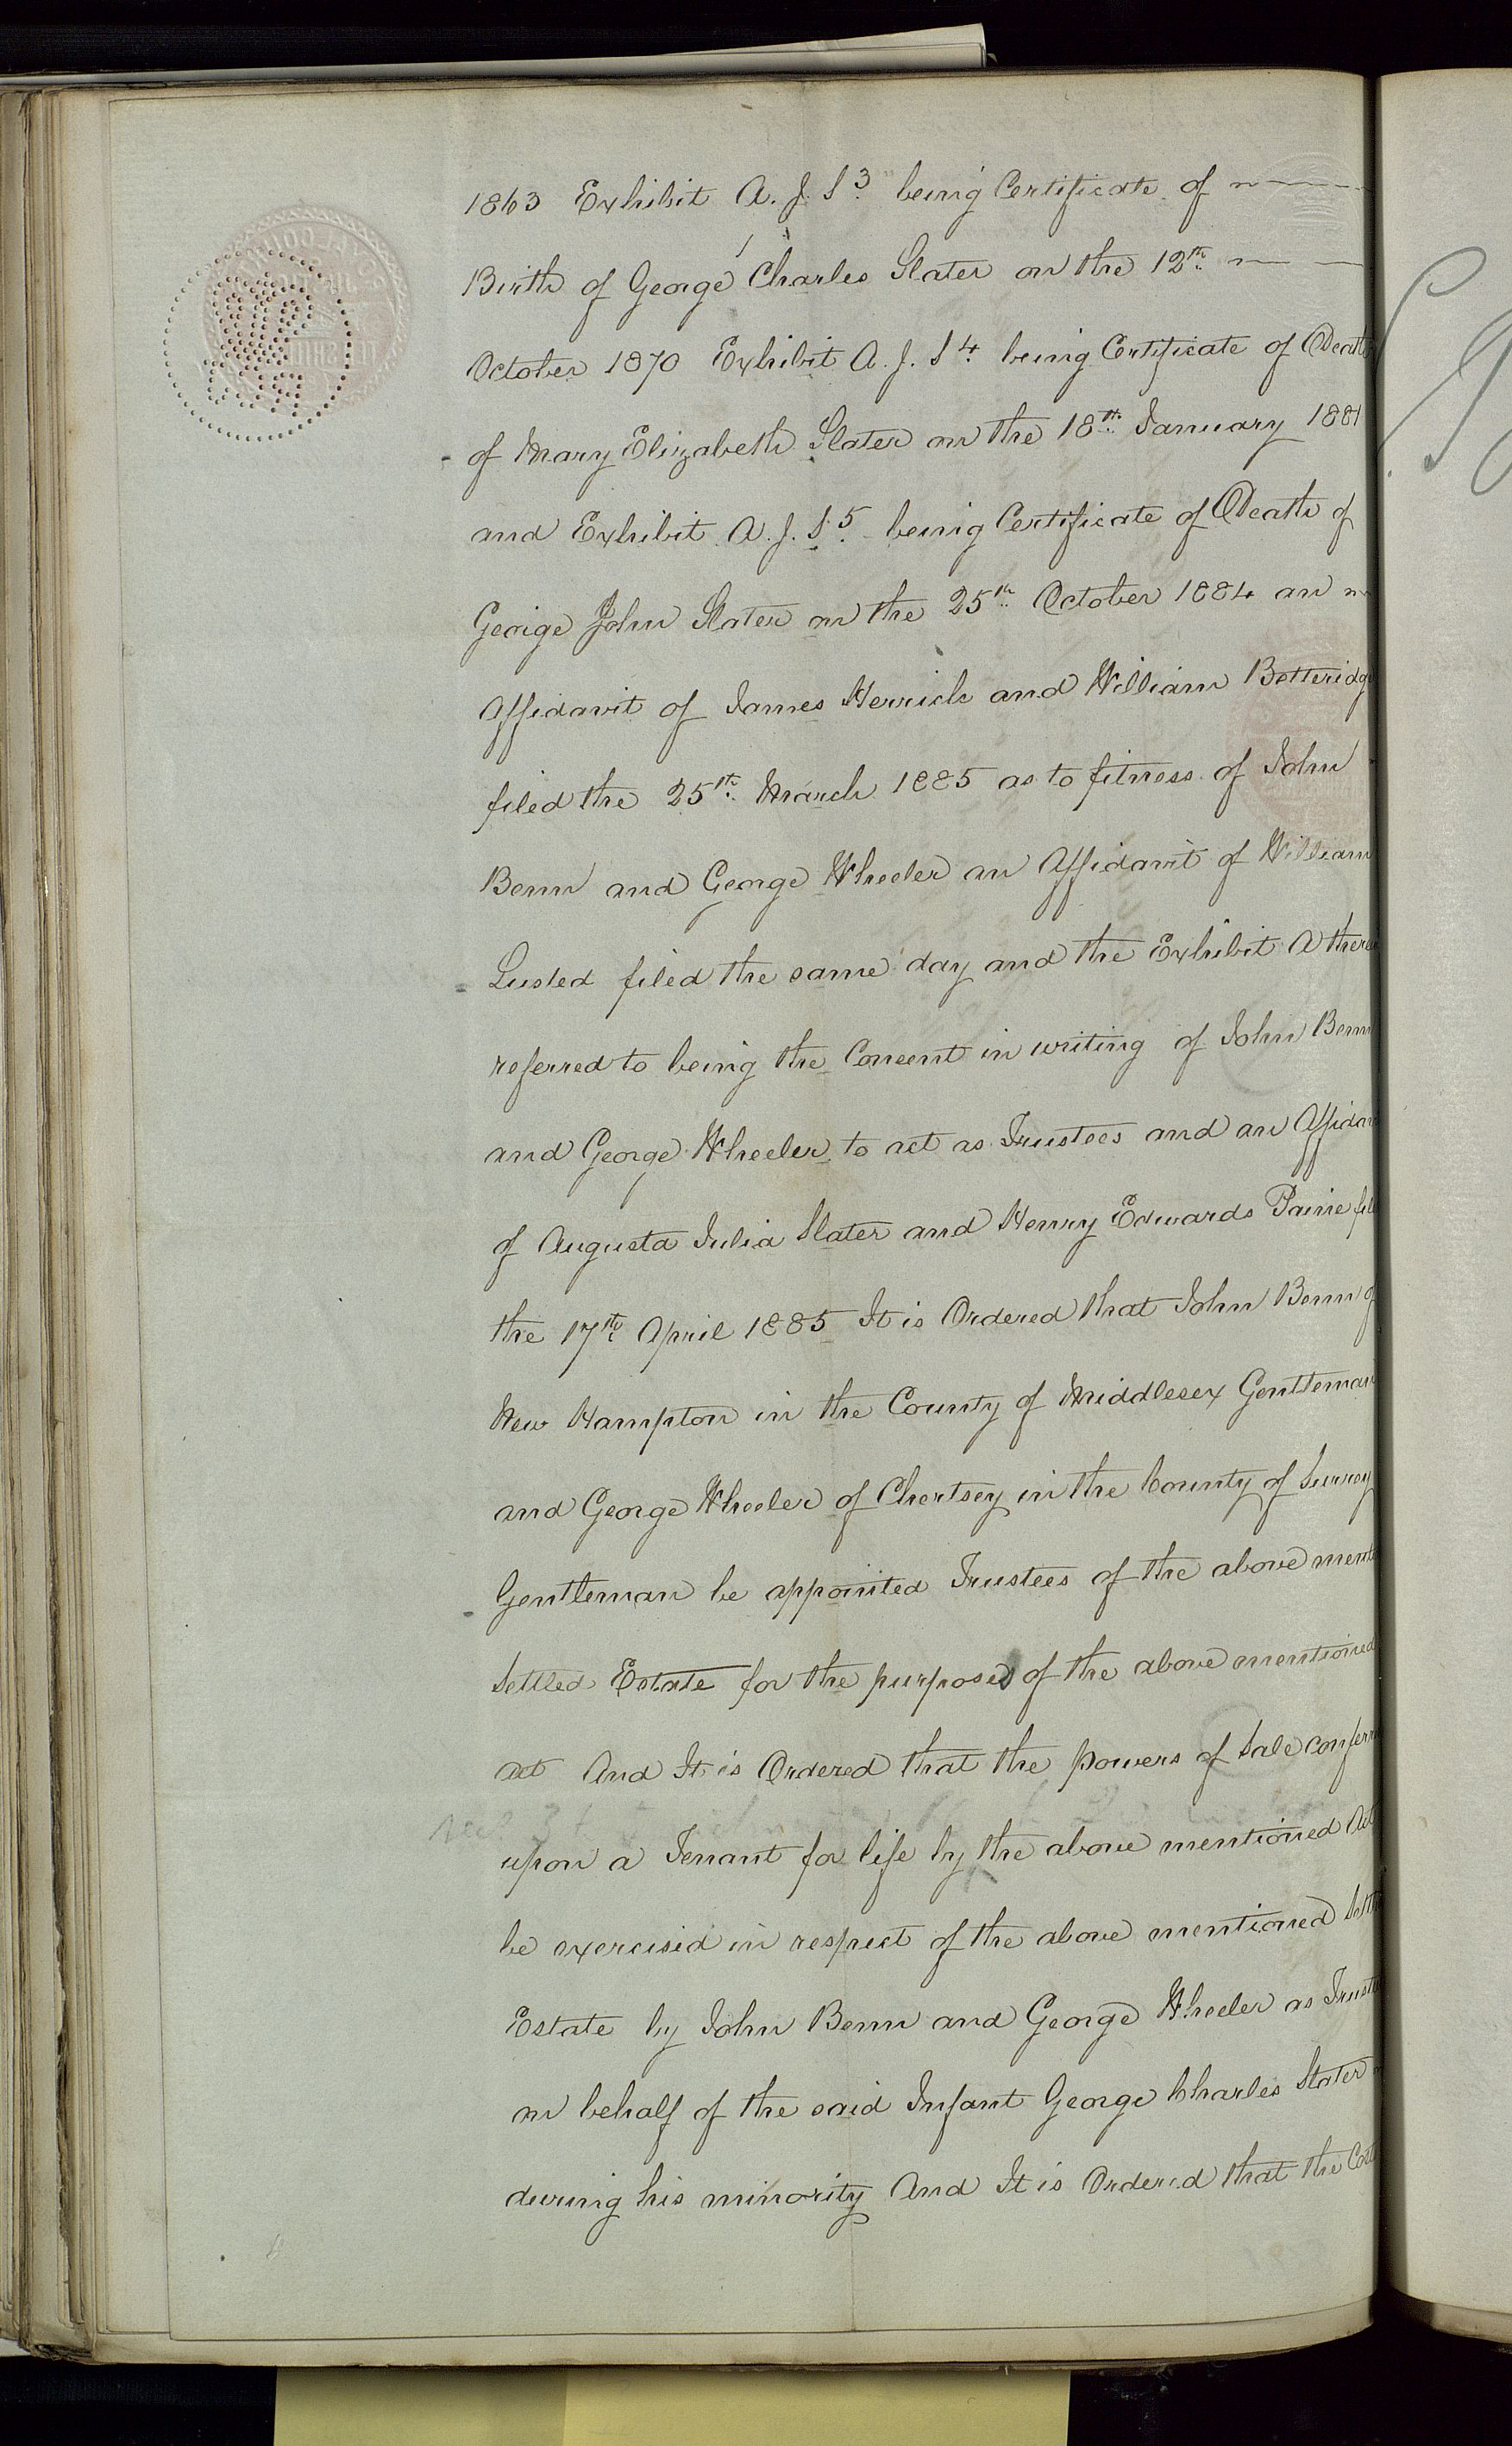 1863 Exhibit A. J. S 3 being Certificate of
Birth of George Charles Slater on the 12th
October 1870 Exhibit A. J. S 4 being Certificate of Death
of Mary Elizabeth Slater on the 18th January 1881
and Exhibit A. J. S 5 being Certificate of Death of
George John Slater on the 25th October 1884 an
Affidavit of James Herrick and William Betteridge
filed the 25th March 1885 as to fitness of John
Benn and George Wheeler an Affidavit of William
Lusted filed the same day and the Exhibit A there
referred to being the Consent in writing of John Benn
and George Wheeler to act as Trustees and an Affidav
of Augusta Julia Slater and Henry Edwards Paine fil
the 17th April 1885 It is Ordered that John Benn of
New Hampton in the County of Middlesex Gentleman
and George Wheeler of Chertsey in the County of Surrey
Gentleman be appointed Trustees of the above ment
Settled Estate for the purposes of the above mentioned
act And It is Ordered that the powers of Sale conferr
upon a Tenant for life by the above mentioned Act
be exercised in respect of the above mentioned Settl
Estate by John Benn and George Wheeler as Truste
on behalf of the said Infant George Charles Slater
during his minority And It is Ordered that the Cost